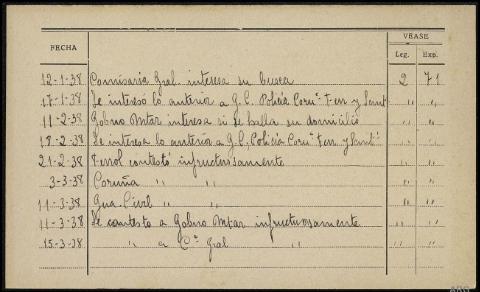 VÉASE
FECHA Leg. Exp.
12-1-38 Comisaria Gral. interesa su busca 2 71
17-1-38 Se intereso lo anterior a G.C. Policía Coruª Ferr y Santº " "
11-2-38 Gobno Mtar interesa si se halla su domicilio " "
18-2-38 Se interesa lo anterior a G.C, Policía Coruª Ferr y Santº " "
21-2-38 Ferrol contestó infructuosamente " "
3-3-38 Coruña " " " "
11-3-38 Gua. Civil " " " "
11-3-38 Se contesto a Gobno Mtar infructuosamente " "
15-3-38 " a Cª Gral " " "